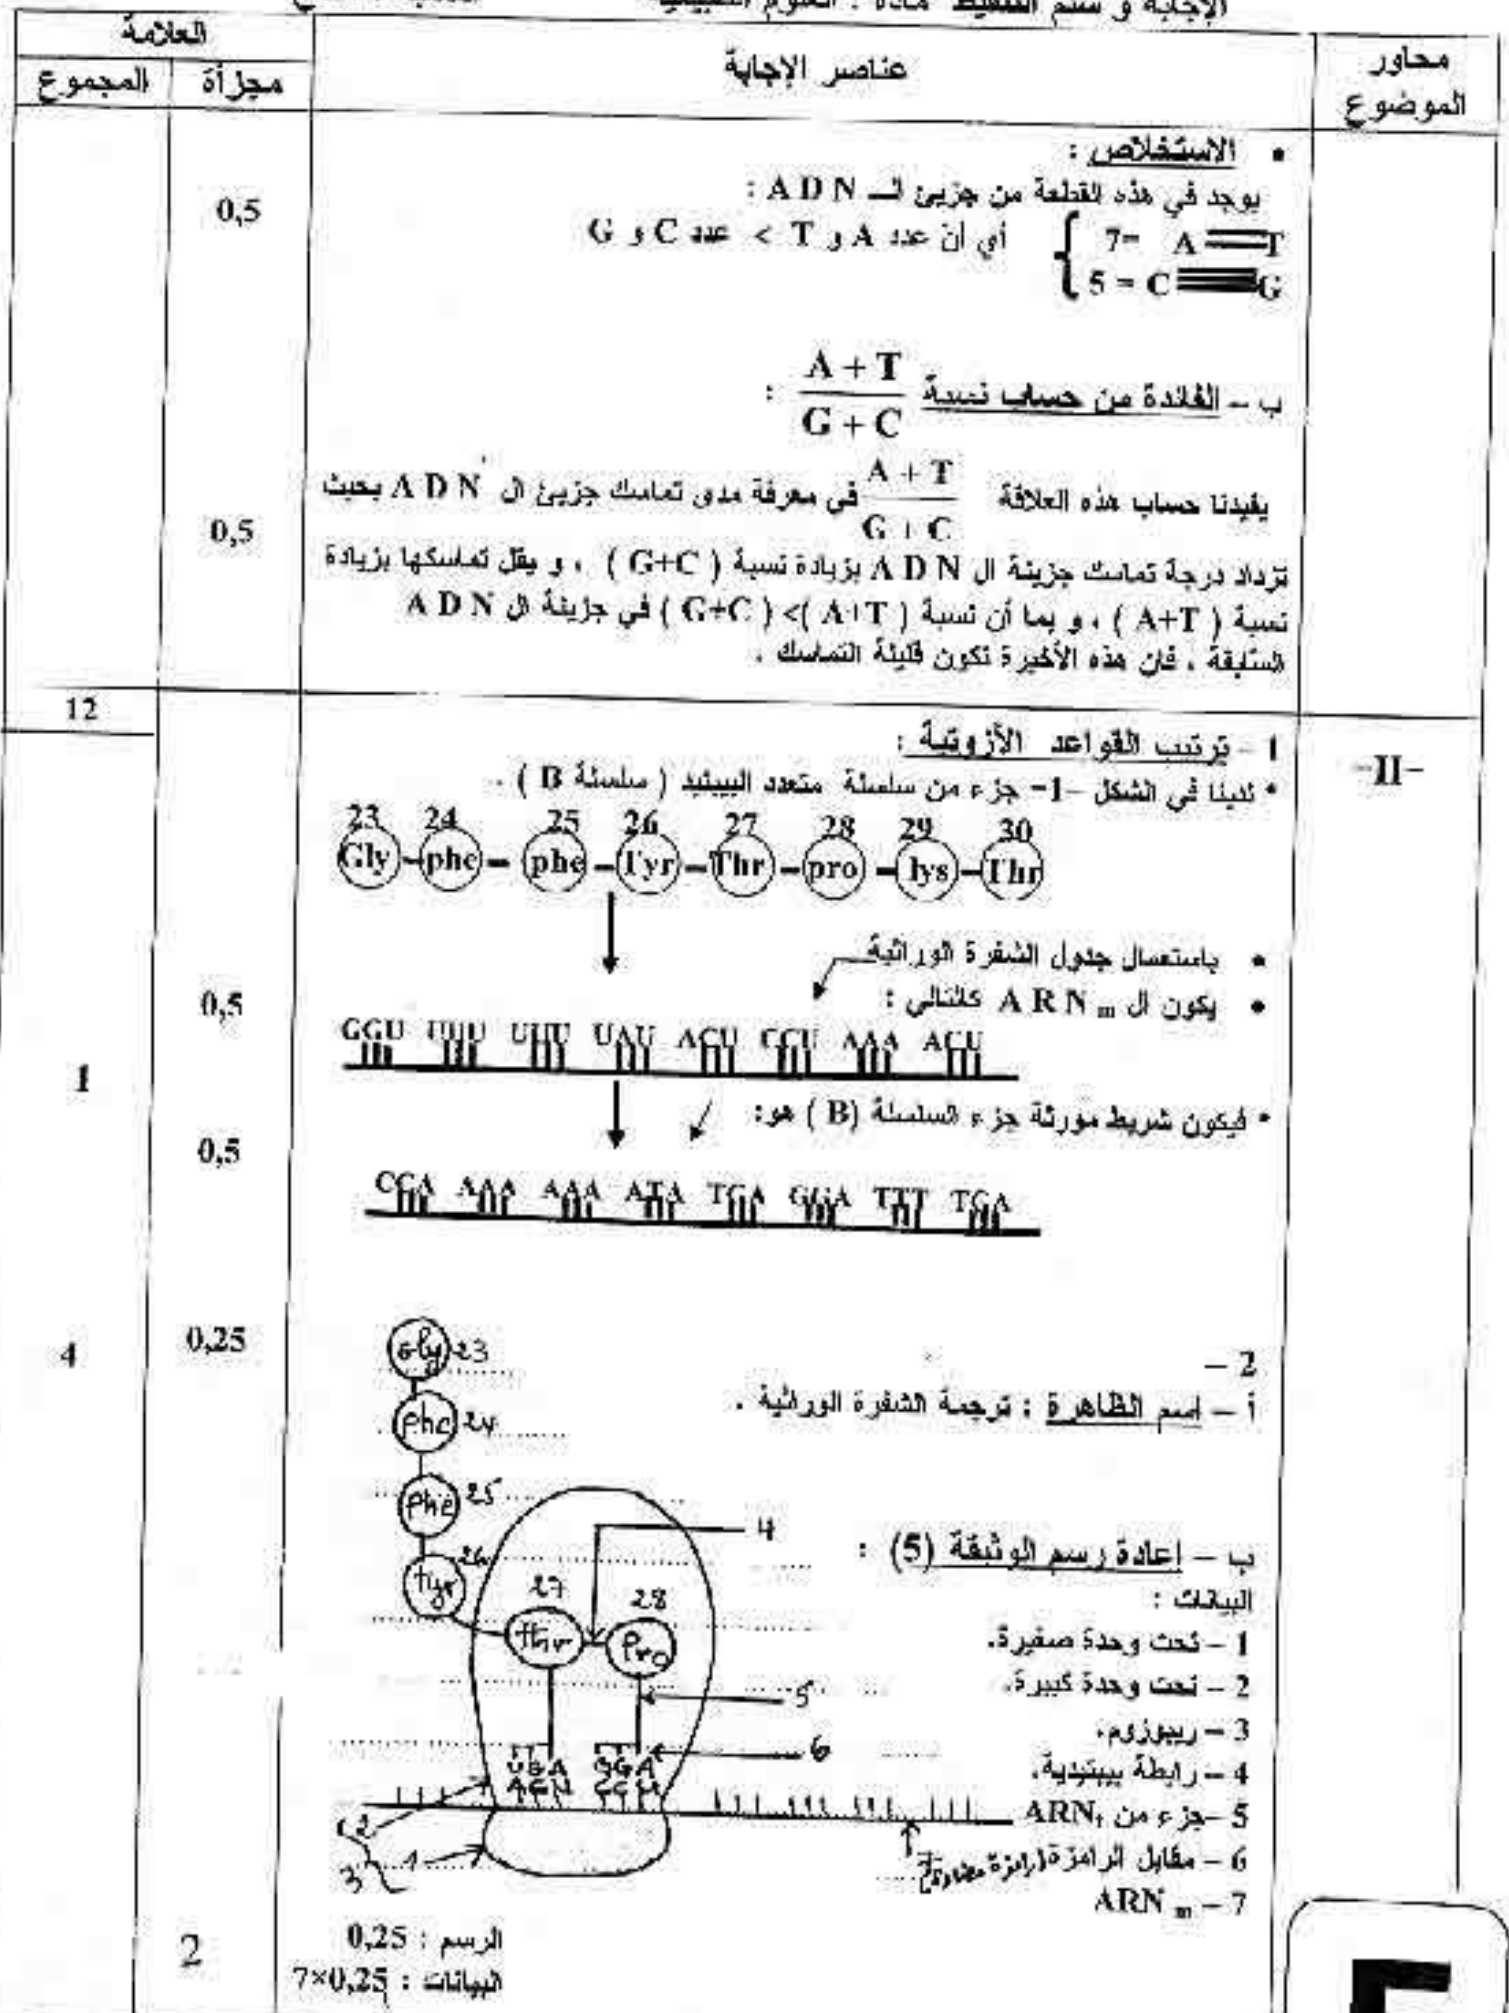 الإجابة و سلم التنقيط مادة : العلوم الطبيعية
العلامة
محاور الموضوع
عناصر الإجابة
مجزأة
المجموع
• الاستخلاص :
يوجد في هذه القطعة من جزيئ الـ A D N :
7= A T
أي أن عدد A و T > عدد C و G
5 = C G
0,5
ب – الفائدة من حساب نسبة A + T / G + C :
يفيدنا حساب هذه العلاقة A + T / G + C في معرفة مدى تماسك جزيئ ال A D N بحيث
0,5
تزداد درجة تماسك جزيئة ال A D N بزيادة نسبة ( G+C ) ، و يقل تماسكها بزيادة
نسبة ( A+T ) ، و بما أن نسبة ( A+T )> ( G+C ) في جزيئة ال A D N
السابقة ، فان هذه الأخيرة تكون قليلة التماسك .
12
-II-
1 – ترتيب القواعد الأزوتية :
* لدينا في الشكل -1- جزء من سلسلة متعدد الببتيد ( سلسلة B ) .
23 24 25 26 27 28 29 30
Gly – phe – phe – Tyr – Thr – pro – lys – Thr
• باستعمال جدول الشفرة الوراثية
• يكون ال ARN m كالتالي :
0,5
GGU UUU UUU UAU ACU CCU AAA ACU
1
* فيكون شريط مورثة جزء السلسلة ( B ) هو:
0,5
CCA AAA AAA ATA TGA GGA TTT TGA
4
0,25
2 –
أ – اسم الظاهرة : ترجمة الشفرة الوراثية .
ب – إعادة رسم الوثيقة (5) :
البيانات :
1 – تحت وحدة صغيرة.
2 – تحت وحدة كبيرة.
3 – ريبوزوم.
4 – رابطة ببتيدية.
5 – جزء من ARNt
6 – مقابل الرامزة (رامزة مضادة)
7 – ARN m
gly 23
phe 24
phe 25
tyr 26
thr 27
Pro 28
4
5
6
UGA GGA
ACU CCU
2
1
3
7
الرسم : 0,25
البيانات : 7×0,25
2